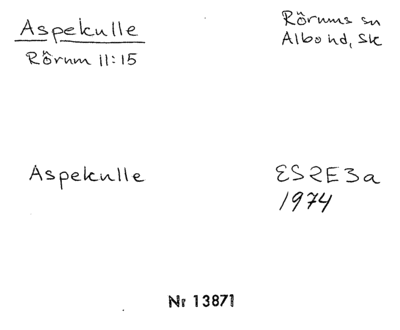 Aspekulle
Rörum 11:15
Rörums sn
Albo hd, Sk
Aspekulle
ES2E3a
1974
Nr 13871